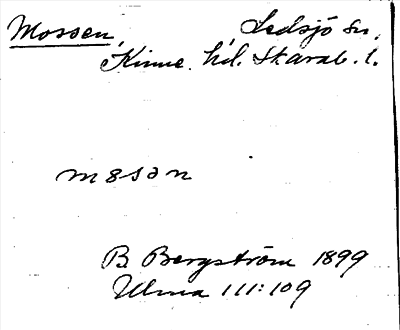 Mossen, Ledsjö sn,
Kinne hd. Skarab. l.
mɵsən
B. Bergström 1899
Ulma 111:109